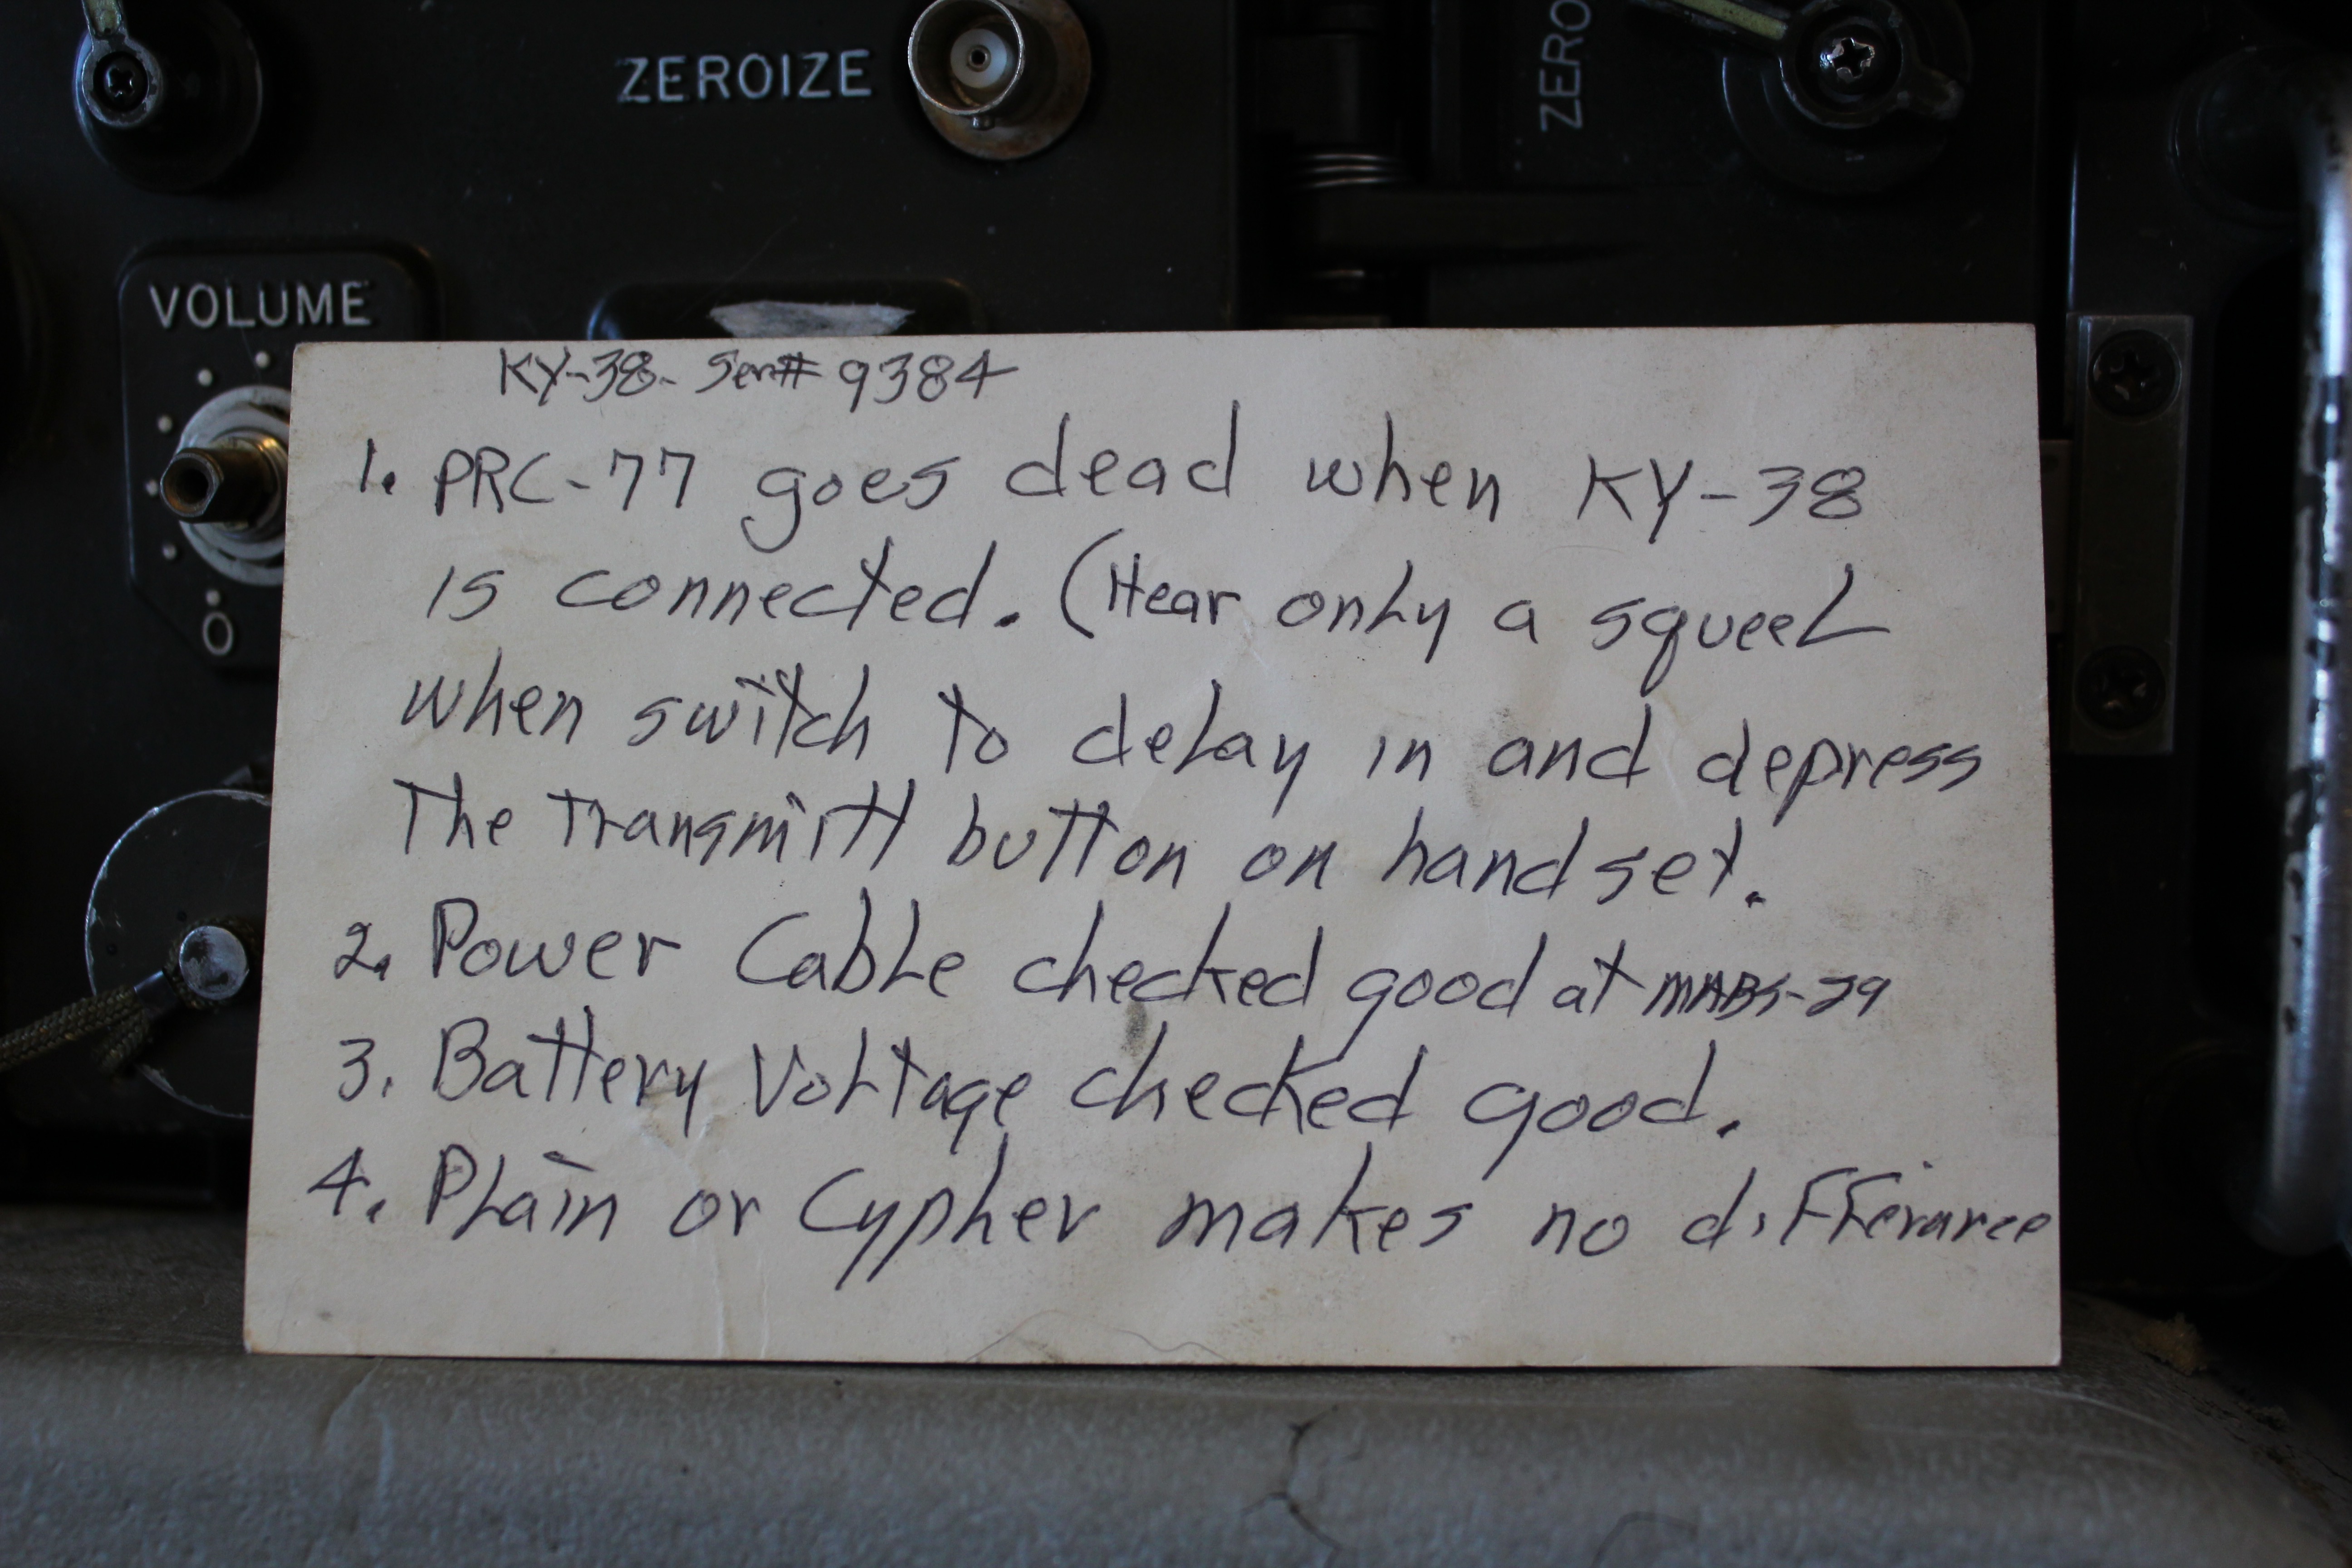 ZEROIZE
ZERO
VOLUME
O
KY-38- Ser# 9384
1. PRC-77 goes dead when KY-38
is connected. (Hear only a squeel
when switch to delay in and depress
The Transmitt button on handset.
2. Power Cable checked good at MABS-29
3. Battery Voltage checked good.
4. Plain or Cypher makes no differance